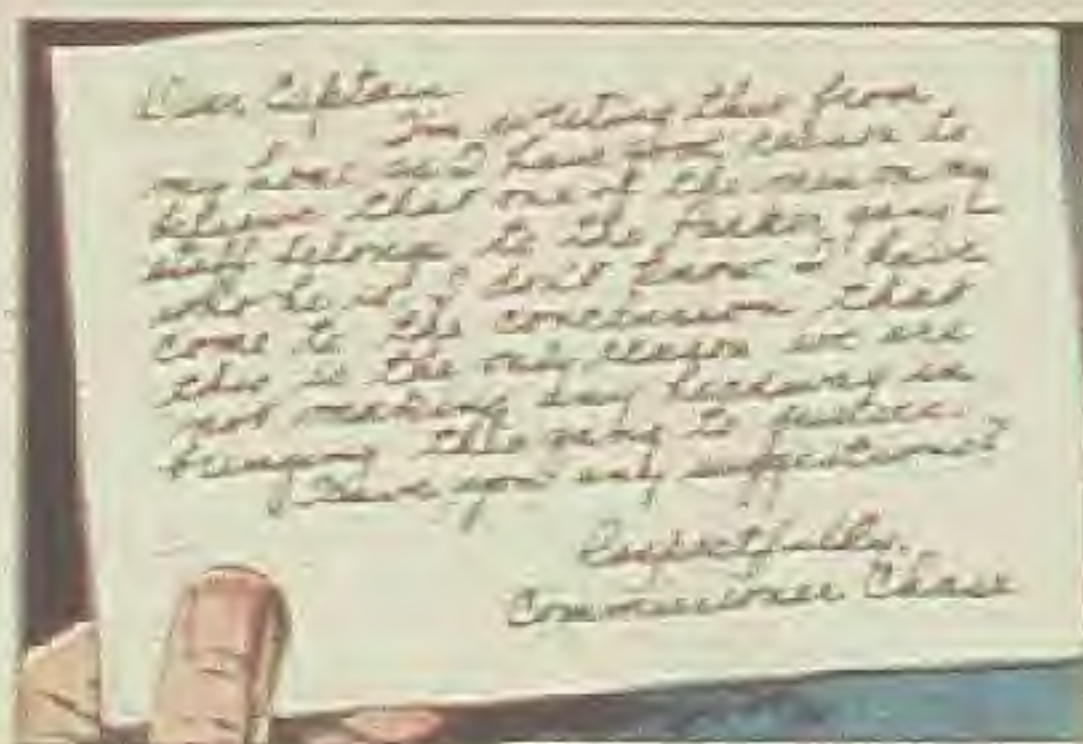 Dear Captain
I'm writing this from
my home as I have good reason to
believe that one of the men on my
staff belongs to the gang -
who he is, I don't know - I have
come to the conclusion that
this is the only reason we are
not making any headway in
bringing this gang to justice.
Have you any suggestions?
Respectfully,
Commissioner Chase